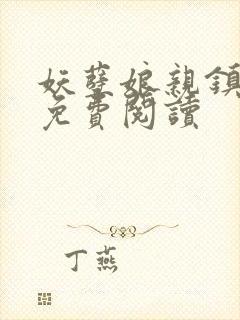 妖孽娘親鎮
免費閱讀
丁燕